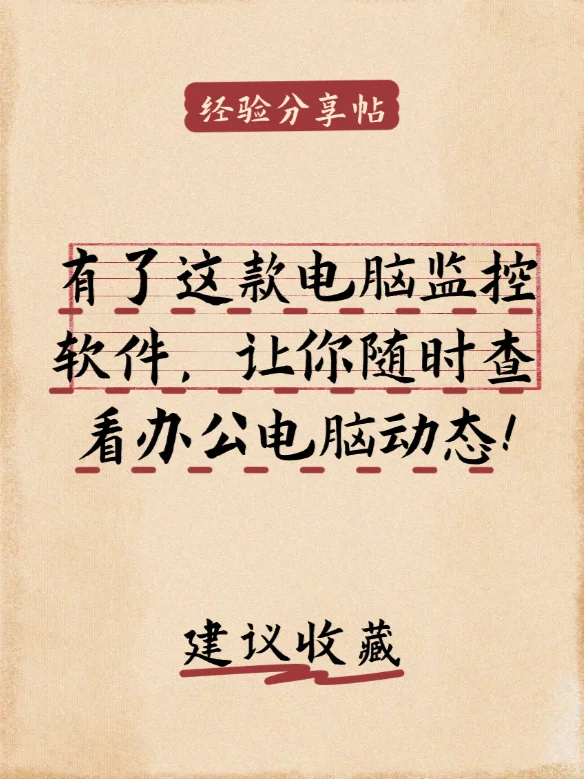 经验分享帖
有了这款电脑监控
软件，让你随时查
看办公电脑动态！
建议收藏